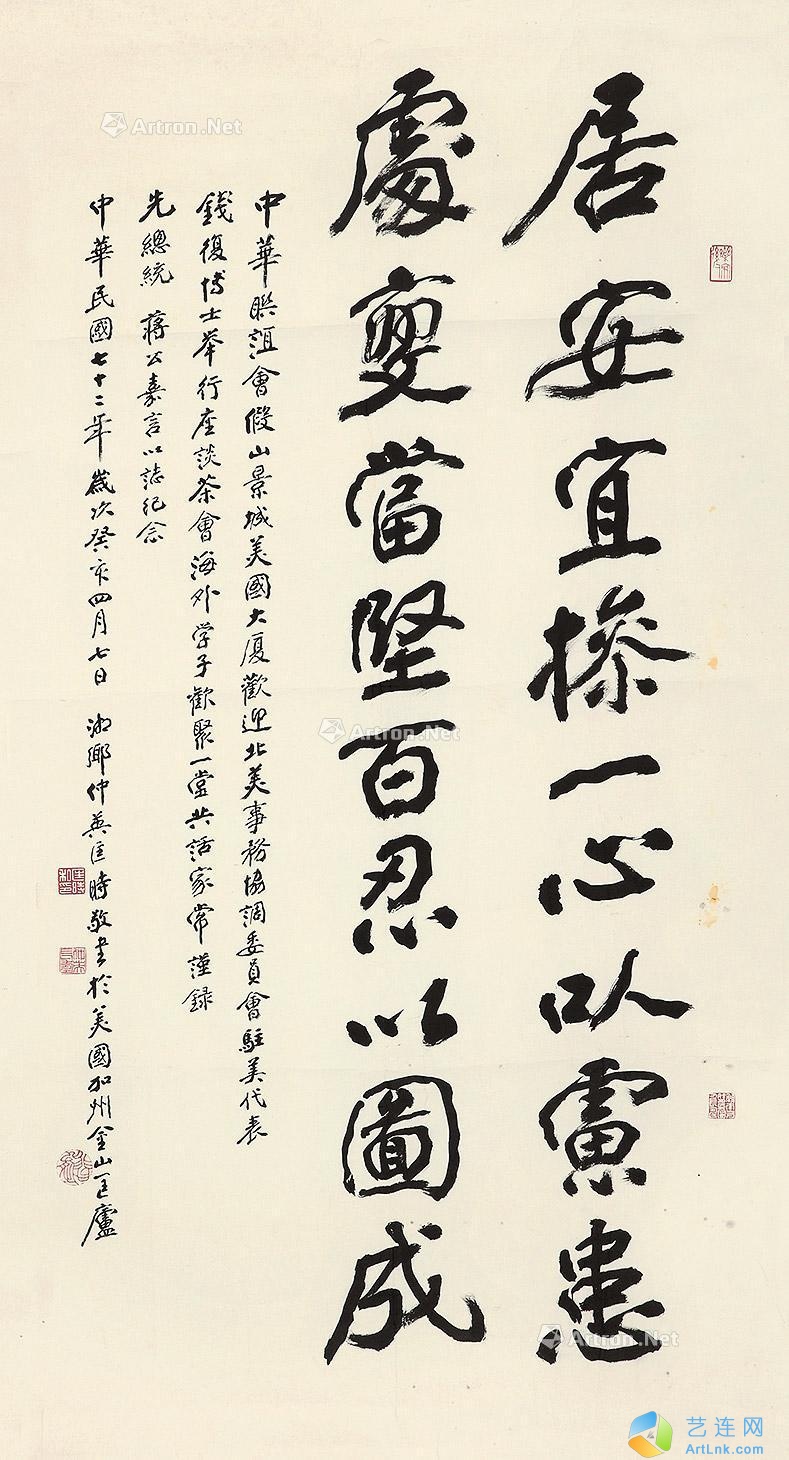 居安宜操一心以慮患
處變當堅百忍以圖成
中華聯誼會假山景城美國大厦歡迎北美事務協調委員會駐美代表
錢復博士举行座談茶會海外学子歡聚一堂共話家常謹録
先總統 蒋公嘉言以誌纪念
中華民國七十二年歲次癸亥四月七日 湘鄉仲英匡時敬書於美國加州金山匡廬
Artron.Net
Artron.Net
Artron.Net
艺连网
ArtLnk.com